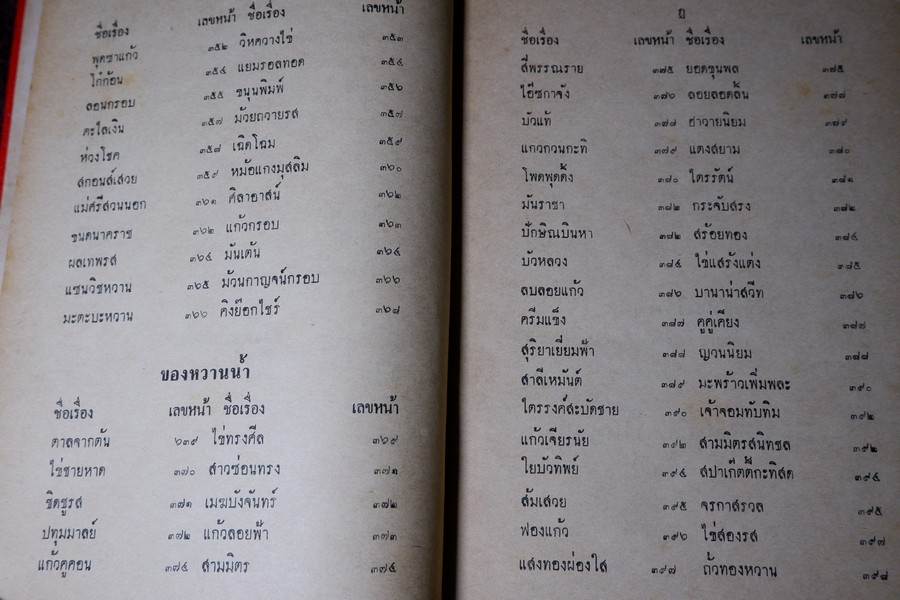 ชื่อเรื่อง เลขหน้า ชื่อเรื่อง เลขหน้า
พุดซาแก้ว ๓๕๒ วิหควางไข่ ๓๕๓
ไก่ก้อน ๓๕๔ แยมรอลทอด ๓๕๔
ลอนกรอบ ๓๕๕ ขนุนพิมพ์ ๓๕๖
ตะไลเงิน ๓๕๗ ม้วยถวายรส ๓๕๗
ห่วงโชค ๓๕๘ เฉิดโฉม ๓๕๙
สกอนส์เสวย ๓๕๙ หม้อแกงมุสลิม ๓๖๐
แม่ศรีสวนนอก ๓๖๑ ศิลาอาสน์ ๓๖๒
ขนดนาคราช ๓๖๒ แก้วกรอบ ๓๖๓
ผลเทพรส ๓๖๔ มันเต้น ๓๖๔
แซนวิชหวาน ๓๖๕ ม้วนกาญจน์กรอบ ๓๖๖
มะตะบะหวาน ๓๖๖ คิงย๊อกไชร์ ๓๖๘
ของหวานน้ำ
ชื่อเรื่อง เลขหน้า ชื่อเรื่อง เลขหน้า
ตาลจากต้น ๖๓๙ ไข่ทรงศีล ๓๖๙
ไข่ชายหาด ๓๗๐ สาวซ่อนทรง ๓๗๑
ชิดชูรส ๓๗๑ เมฆบังจันทร์ ๓๗๒
ปทุมมาลย์ ๓๗๒ แก้วลอยฟ้า ๓๗๓
แก้วคู่คอน ๓๗๔ สามมิตร ๓๗๔
ฎ
ชื่อเรื่อง เลขหน้า ชื่อเรื่อง เลขหน้า
สี่พรรณราย ๓๗๕ ยอดขุนพล ๓๗๕
ไอ๊ซกาจัง ๓๗๖ ลอยลอดลิ้น ๓๗๗
บัวแท้ ๓๗๗ ฮาวายนิยม ๓๗๙
แกวกวนกะทิ ๓๗๙ แตงสยาม ๓๘๐
โพดพุดดิ้ง ๓๘๐ ไตรรัตน์ ๓๘๑
มันราชา ๓๘๒ กระจับสรง ๓๘๒
ปักษิณบินหา ๓๘๒ สร้อยทอง ๓๘๔
บัวหลวง ๓๘๔ ไข่แสร้งแต่ง ๓๘๕
ลบลอยแก้ว ๓๘๖ บานาน่าสวีท ๓๘๖
ครีมแข็ง ๓๘๗ คู่คู่เคียง ๓๘๗
สุริยาเยี่ยมฟ้า ๓๘๘ ญวนนิยม ๓๘๘
สาลีเหมันต์ ๓๘๙ มะพร้าวเพิ่มพละ ๓๙๐
ไตรรงค์สะบัดชาย ๓๙๐ เจ้าจอมทับทิม ๓๙๒
แก้วเจียรนัย ๓๙๒ สามมิตรสนิทชล ๓๙๒
ใยบัวทิพย์ ๓๙๔ สปาเก๊ตตี้กะทิสด ๓๙๔
ส้มเสวย ๓๙๕ จรกาสรวล ๓๙๕
ฟองแก้ว ๓๙๖ ไข่สองรส ๓๙๗
แสงทองผ่องใส ๓๙๗ ถั่วทองหวาน ๓๙๘